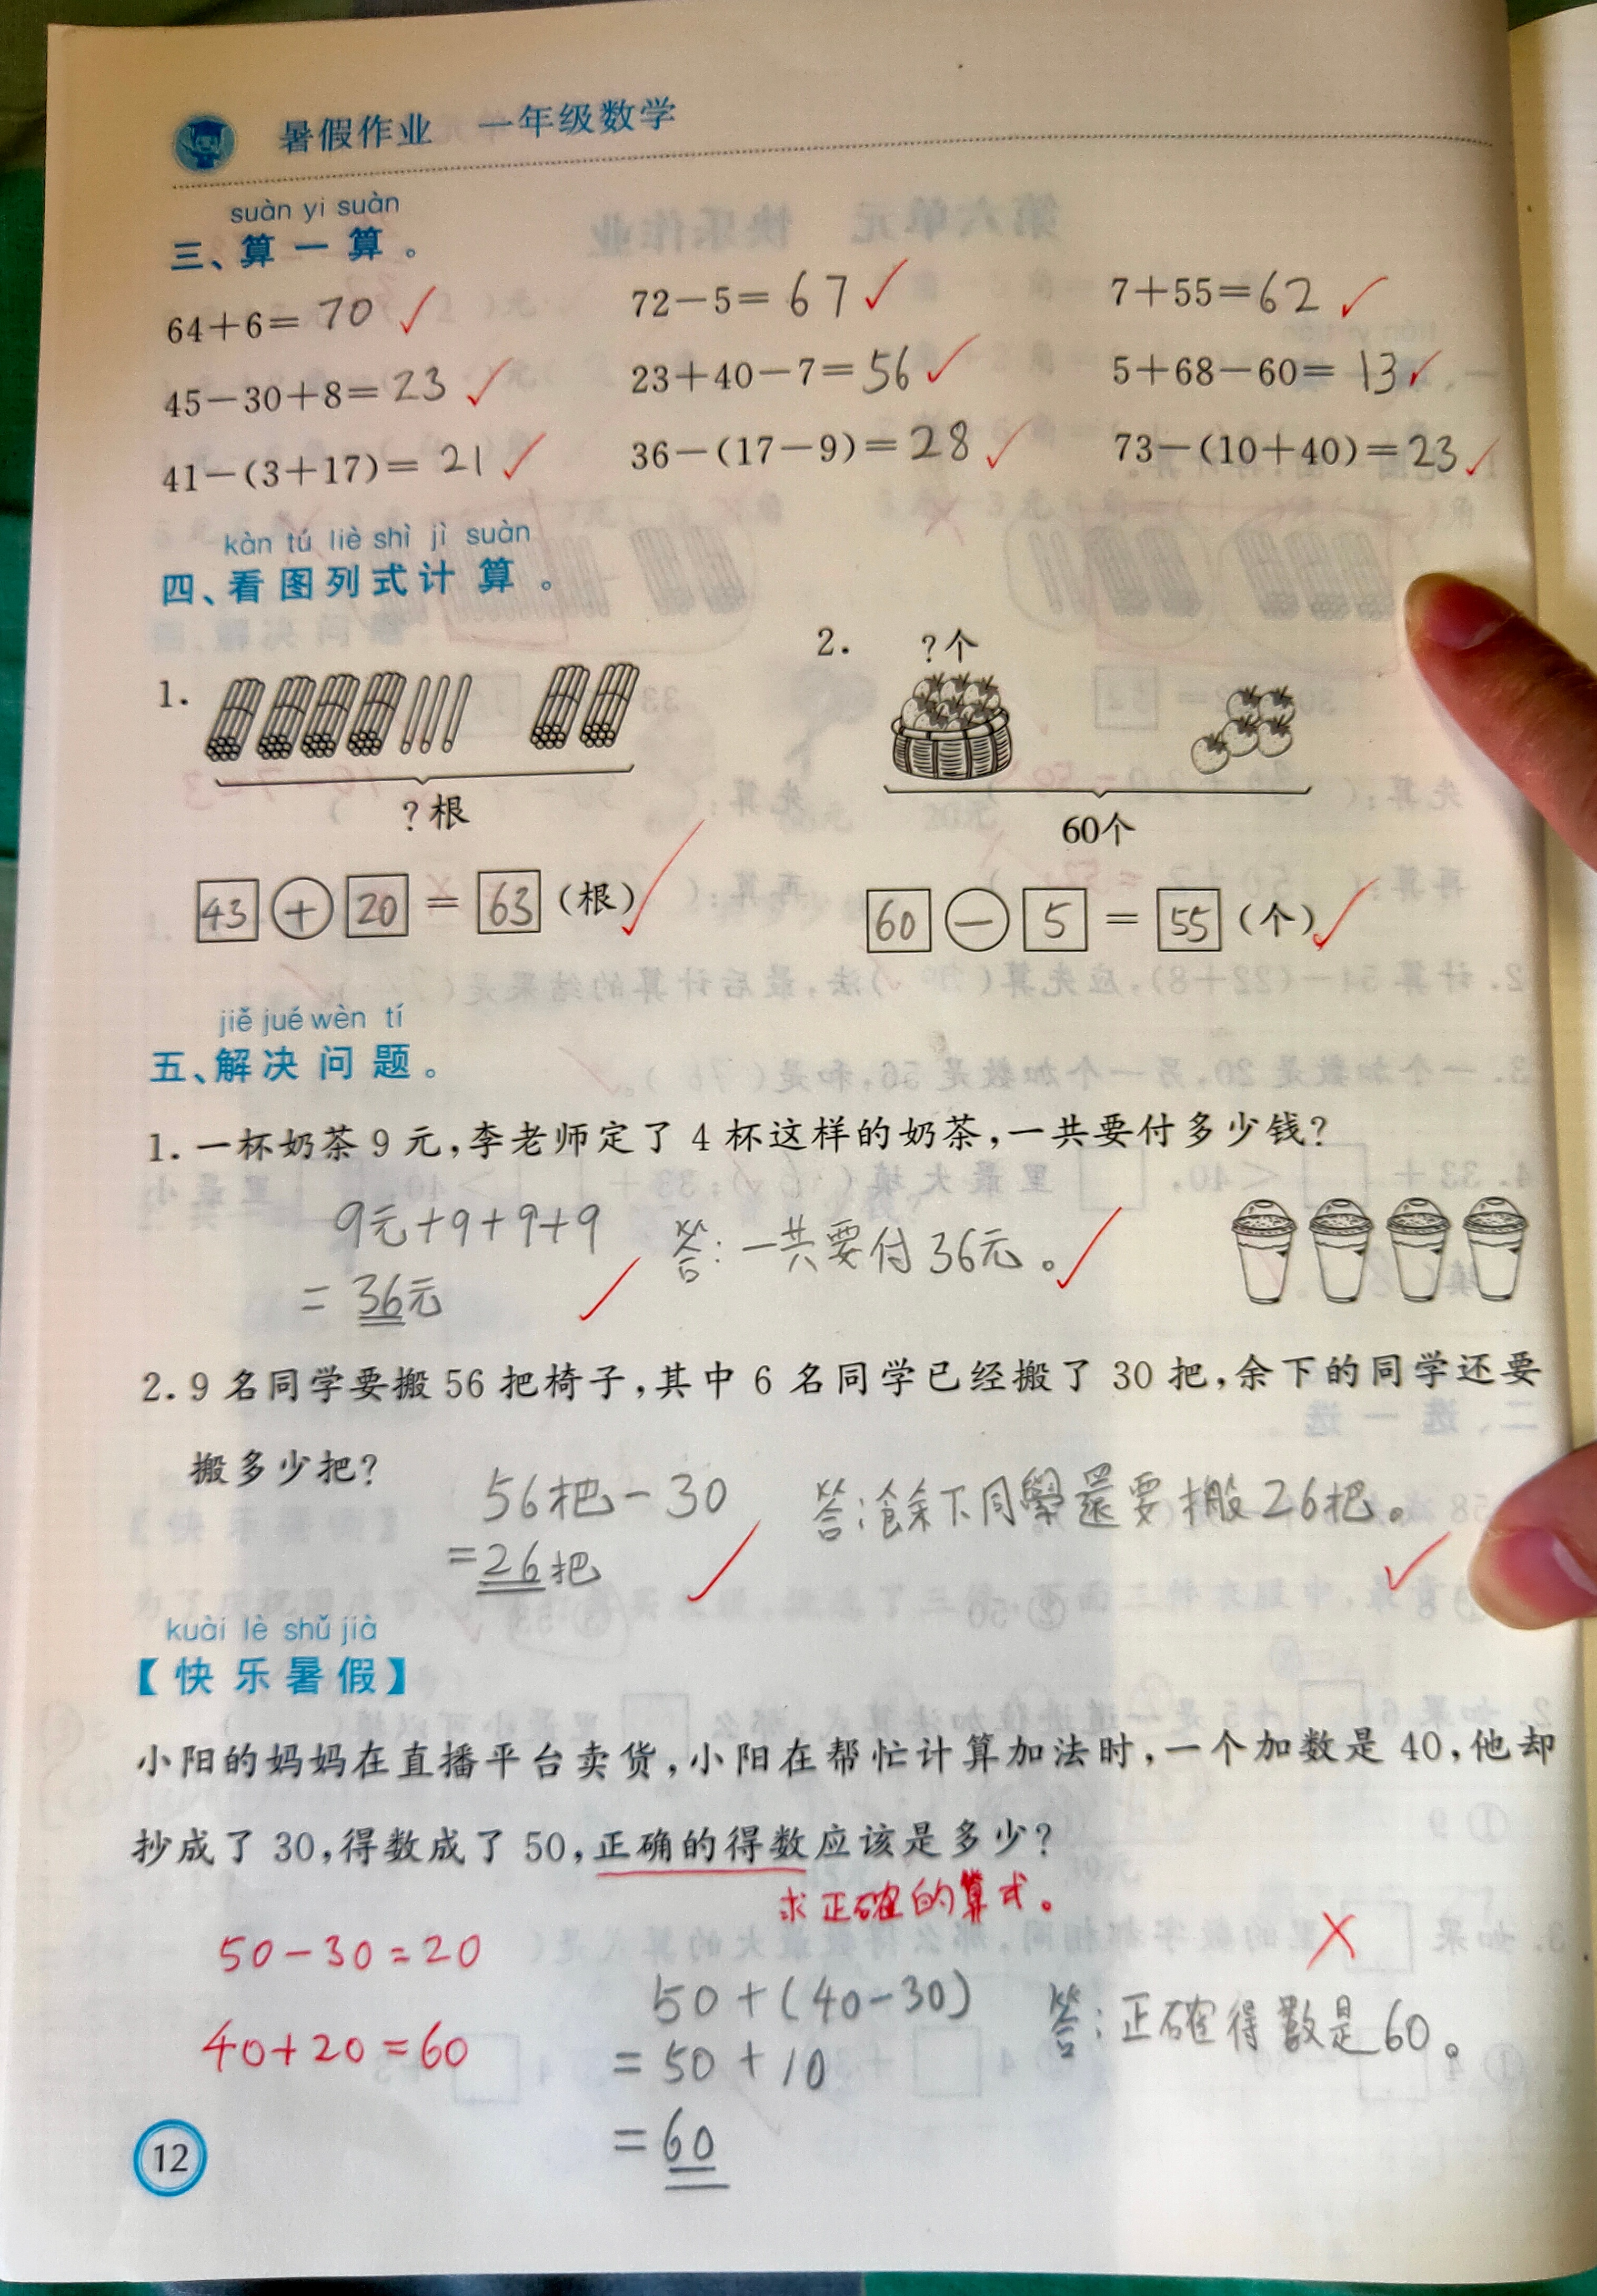 暑假作业 一年级数学
suàn yi suàn
三、算一算。
64+6=70 ✓ 72-5=67 ✓ 7+55=62 ✓
45-30+8=23 ✓ 23+40-7=56 ✓ 5+68-60=13 ✓
41-(3+17)=21 ✓ 36-(17-9)=28 ✓ 73-(10+40)=23 ✓
kàn tú liè shì jì suàn
四、看图列式计算。
1.
?根
43 + 20 = 63 (根) ✓
2. ?个
60个
60 - 5 = 55 (个) ✓
jiě jué wèn tí
五、解决问题。
1. 一杯奶茶9元,李老师定了4杯这样的奶茶,一共要付多少钱?
9元+9+9+9
= 36元 ✓
答:一共要付36元。 ✓
2. 9名同学要搬56把椅子,其中6名同学已经搬了30把,余下的同学还要
搬多少把?
56把-30
=26把 ✓
答:餘下同學還要搬26把。 ✓
kuài lè shǔ jià
【快乐暑假】
小阳的妈妈在直播平台卖货,小阳在帮忙计算加法时,一个加数是40,他却
抄成了30,得数成了50,正确的得数应该是多少?
求正確的算式。
50-30=20
40+20=60
50+(40-30)
=50+10
=60
答:正確得數是60。
✗
12